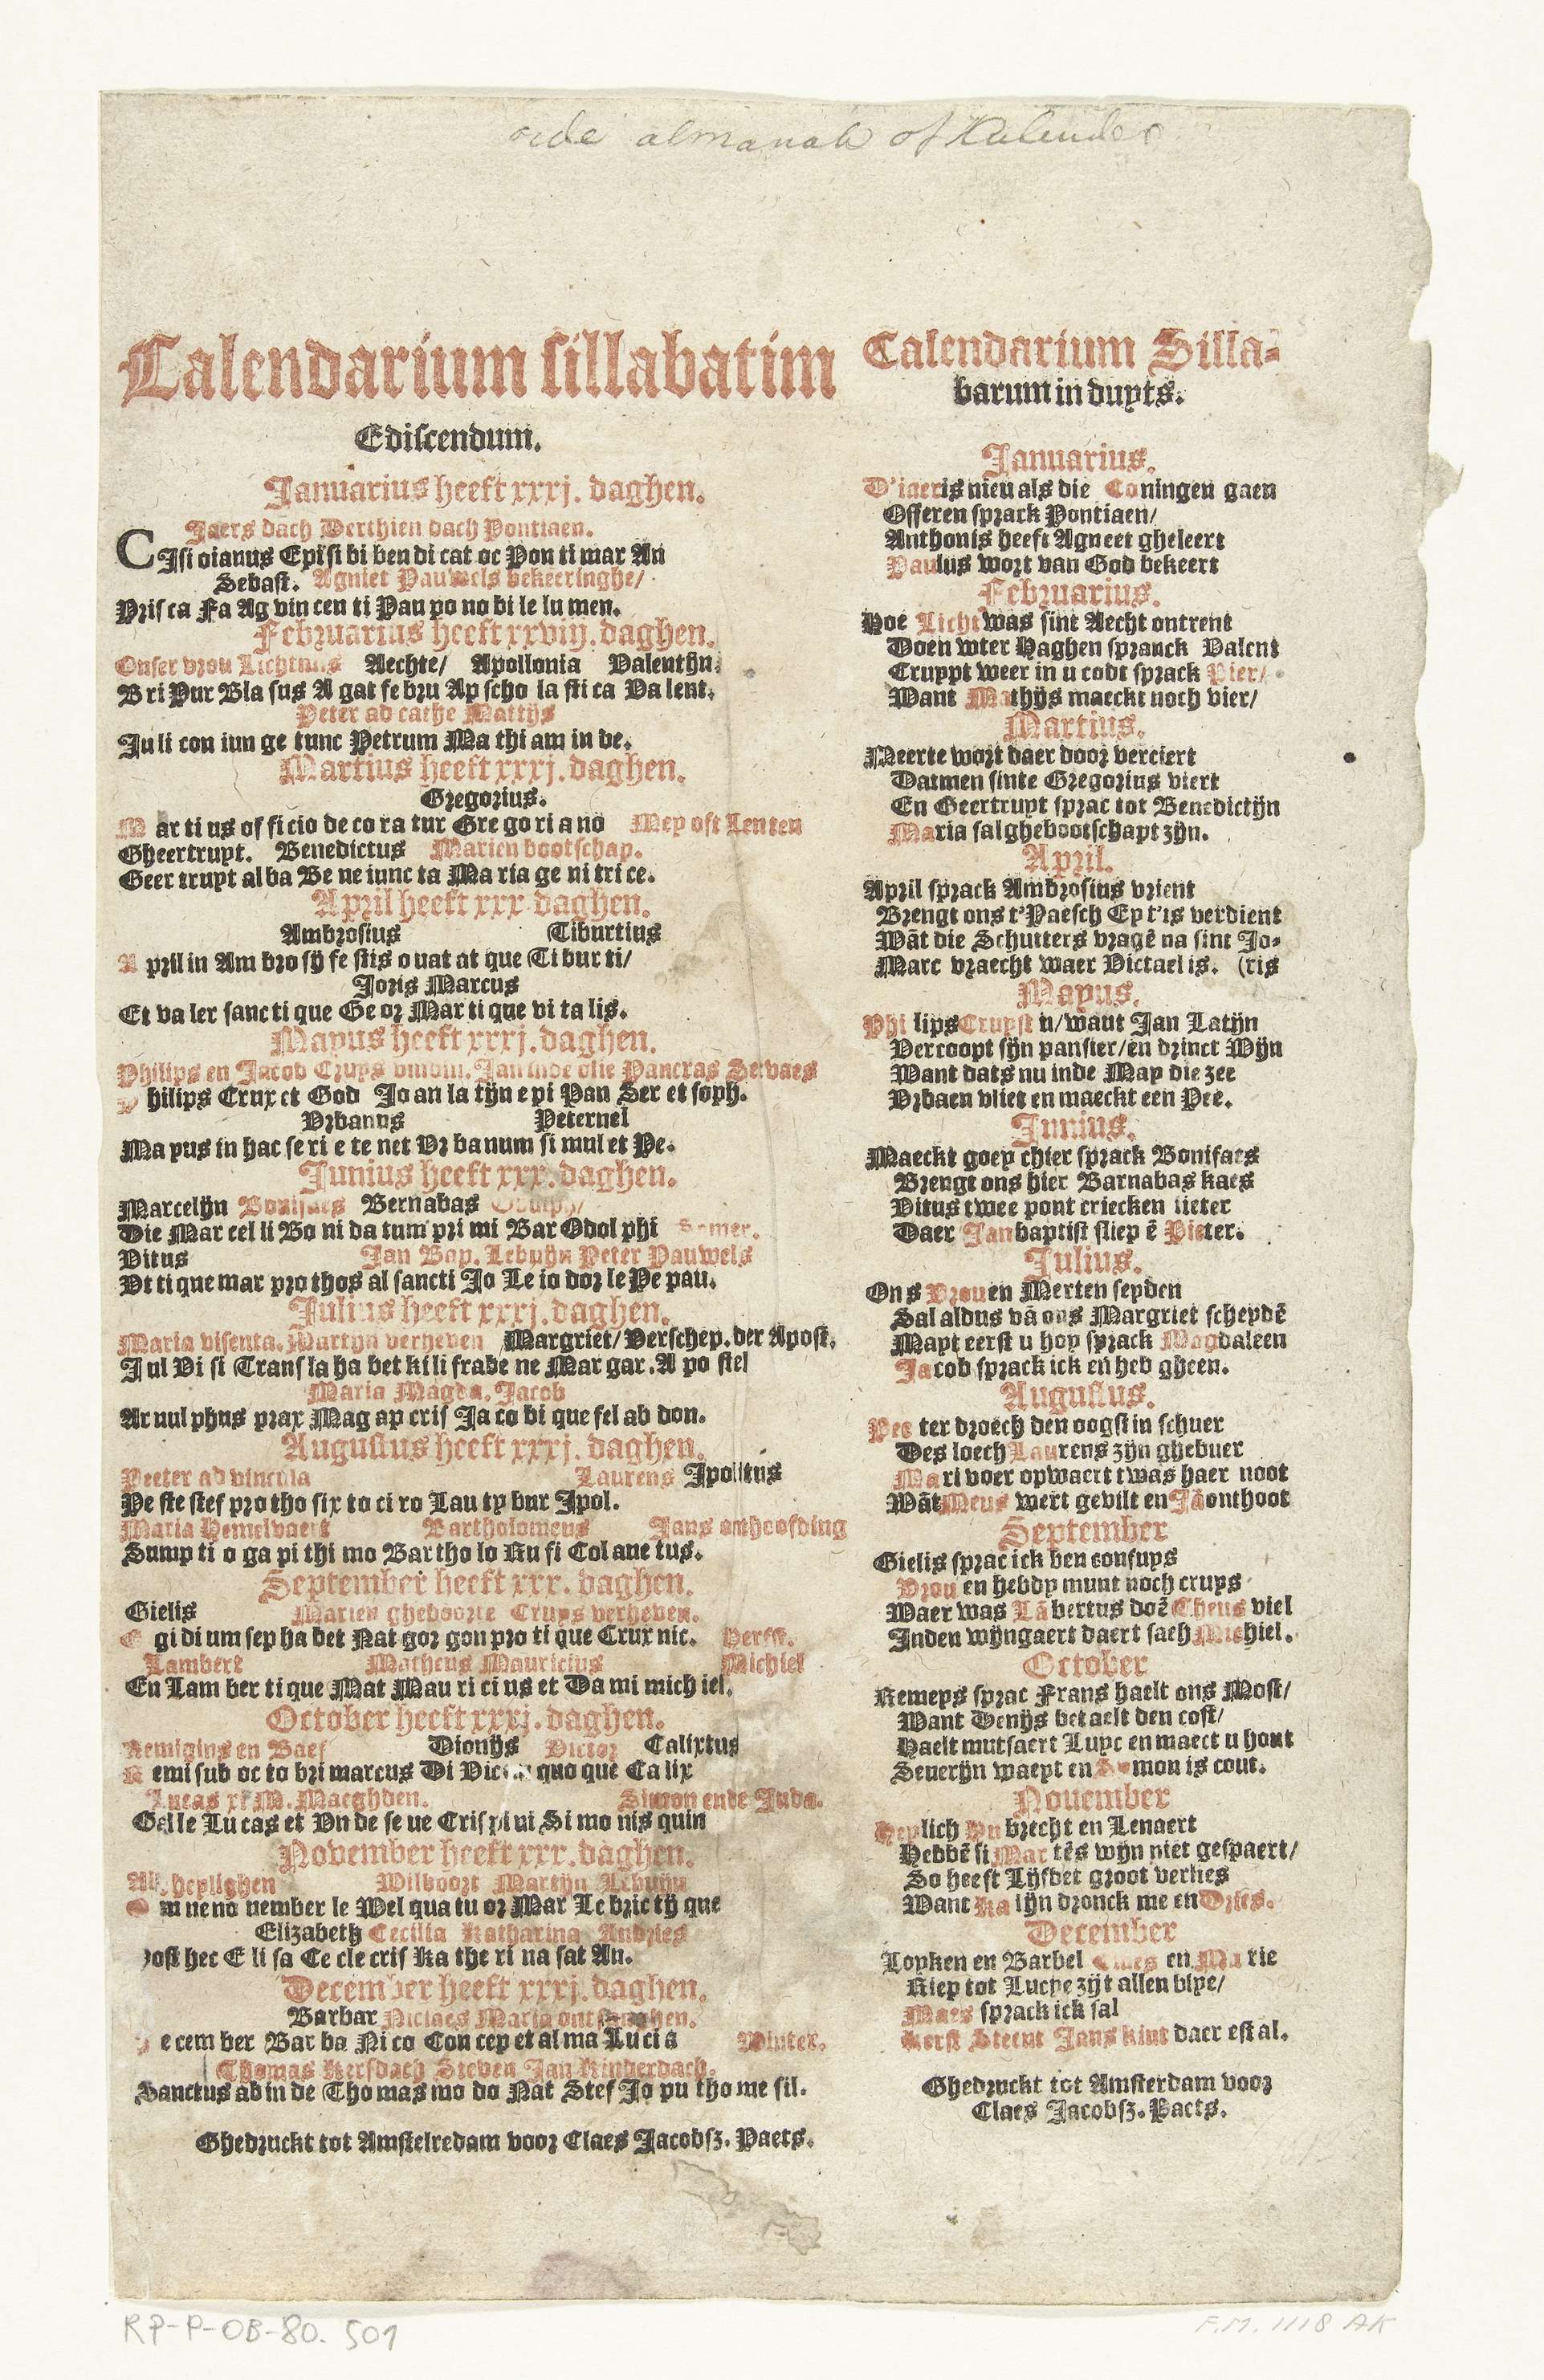 almanak of Kalender
Calendarium sillabatim
Ediscendum.
Januarius heeft xxxj. daghen.
Jaers dach Derthien dach Pontiaen.
CIsi oianus Epi si bi ben di cat oc Pon ti mar An
Sebast. Agniet Pauwels bekeeringhe/
Pris ca Fa Ag vin cen ti Pau po no bi le lu men.
Februarius heeft xxviij. daghen.
Onser vrou Lichtmis Aechte/ Apollonia Valentijn.
Bri Pur Bla sus A gat febru Ap scho la sti ca Va lent.
Peter ad cathe Mattijs
Ju li con iun ge tunc Petrum Ma thi am in de.
Martius heeft xxxj. daghen.
Gregorius.
M ar ti us of fi cio de co ra tur Gre go ri a no Mey oft Lenten
Gheertruyt. Benedictus Marien bootschap.
Geer truyt al ba Be ne iunc ta Ma ria ge ni tri ce.
April heeft xxx. daghen.
Ambrosius Tiburtius
A pril in Am bro sij fe stis o uat at que Ti bur ti/
Joris Marcus
Et va ler sanc ti que Ge or Mar ti que vi ta lis.
Mayus heeft xxxj. daghen.
Philips en Jacob Cruys Jan inde olie Pancras Servaes
P hilips Crux et God Jo an la tijn e pi Pan Ser et soph.
Vrbanus Peternel
Ma yus in hac se ri e te net Vr ba num si mul et Pe.
Junius heeft xxx. daghen.
Marcelijn Bonifaes Bernabas Odulph/
Die Mar cel li Bo ni da tum pri mi Bar Odol phi Somer.
Vitus Jan Bap. Lebuijn Peter Pauwels
Vt ti que mar pro thos al sancti Jo Le io dor le Pe pau.
Julius heeft xxxj. daghen.
Maria visenta. Martijn verheven Margriet/ Verschep. der Apost.
Jul Vi si Trans la ha bet ki li frabe ne Mar gar. A po stel
Maria Magda. Jacob
Ar nul phus prax Mag ap cris Ja co bi que fel ab don.
Augustus heeft xxxj. daghen.
Peeter ad vincula Laurens Jpolitus
Pe ste stef pro tho six to ci ro Lau ty bur Jpol.
Maria Hemelvaert Bartholomeus Jans onthoofding
Sump ti o ga pi thi mo Bar tho lo Ru fi Col aue tus.
September heeft xxx. daghen.
Gielis Marien gheboorte Cruys verheven.
E gi di um sep ha bet Nat gor gon pro ti que Crux nic. Herfst.
Lambert Matheus Mauricius Michiel
En Lam ber ti que Mat Mau ri ci us et Da mi mich iel.
October heeft xxxj. daghen.
Remigius en Baef Dionijs Victor Calixtus
R emi sub oc to bri marcus Di Victor quo que Ca lix
Lucas xj M. Maeghden. Simon ende Juda.
Galle Lu cas et Vn de se ue Cris pi ni Si mo nis quin
November heeft xxx. daghen.
All. heylighen Wilboort Martijn Lebuijn
O m ne no uember le Wel qua tu or Mar Le bric tij que
Elizabeth Cecilia Katharina Andries
Post hec E li sa Ce cle cris Ka the ri na sat An.
December heeft xxxj. daghen.
Barbar Niclaes Maria ontfanghen.
D ecem ber Bar ba Ni co Con cep et al ma Lu ci a Winter.
Thomas Kersdach Steven Jan Kinderdach.
Sanctus ab in de Tho mas mo do Nat Stef Jo pu tho me sil.
Ghedruckt tot Amstelredam voor Claes Jacobsz. Paets.
Calendarium Silla-
barum in duyts.
Januarius.
D'iaer is nieu als die Coningen gaen
Offeren sprack Pontiaen/
Anthonis heeft Agneet gheleert
Paulus wort van God bekeert
Februarius.
Hoe Licht was sint Aecht ontrent
Doen wter Haghen spranck Valent
Cruypt weer in u codt sprack Pier/
Want Mathijs maeckt noch vier/
Martius.
Meerte wort daer door verciert
Datmen sinte Gregorius viert
En Geertruyt sprac tot Benedictijn
Maria sal ghebootschapt zijn.
April.
April sprack Ambrosius vrient
Brengt ons t'Paesch Ey t'is verdient
Wāt die Schutters vragē na sint Jo-
Marc vraecht waer Victael is. (ris
Mayus.
Philips Cruyst n/want Jan Latijn
Vercoopt sijn pansier/en drinct Wijn
Want dats nu inde May die zee
Vrbaen vliet en maeckt een Pee.
Junius.
Maeckt goey chier sprack Bonifaes
Brengt ons hier Barnabas kaes
Vitus twee pont criecken lieter
Daer Jan baptist sliep ē Pieter.
Julius.
Ons Vrouen Merten seyden
Sal aldus vā ons Margriet scheydē
Mayt eerst u hoy sprack Magdaleen
Jacob sprack ick en heb gheen.
Augustus.
Peeter droech den oogst in schuer
Des loech Laurens zijn ghebuer
Mari voer opwaert twas haer noot
Wāt Meus wert gevilt en Jā onthoot
September
Gielis sprac ick ben confuys
Vrou en hebdy munt noch cruys
Waer was Lābertus doē Theus viel
Inden wijngaert daert sach Michiel.
October
Remeys sprac Frans haelt ons Most/
Want Denijs betaelt den cost/
Haelt mutsaert Luyc en maect u hout
Severijn waeyt en Symon is cout.
November
Heylich Hubrecht en Lenaert
Hebbē si Martēs wijn niet gespaert/
So heeft Lijsbet groot verlies
Want Katijn dronck me en Dries.
December
Loyken en Barbel Claes en Marie
Riep tot Lucye zijt allen blye/
Maes sprack ick sal
Kerst Steent Jans kint daer est al.
Ghedruckt tot Amsterdam voor
Claes Jacobsz. Paets.
RP-P-OB-80.501
F.M. 1118 AK